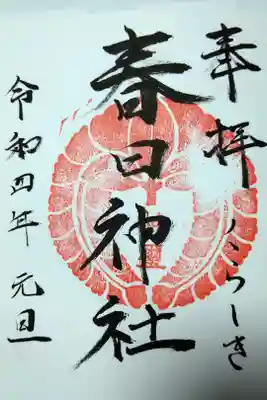 奉拝
くらしき
春日神社
令和四年 元旦